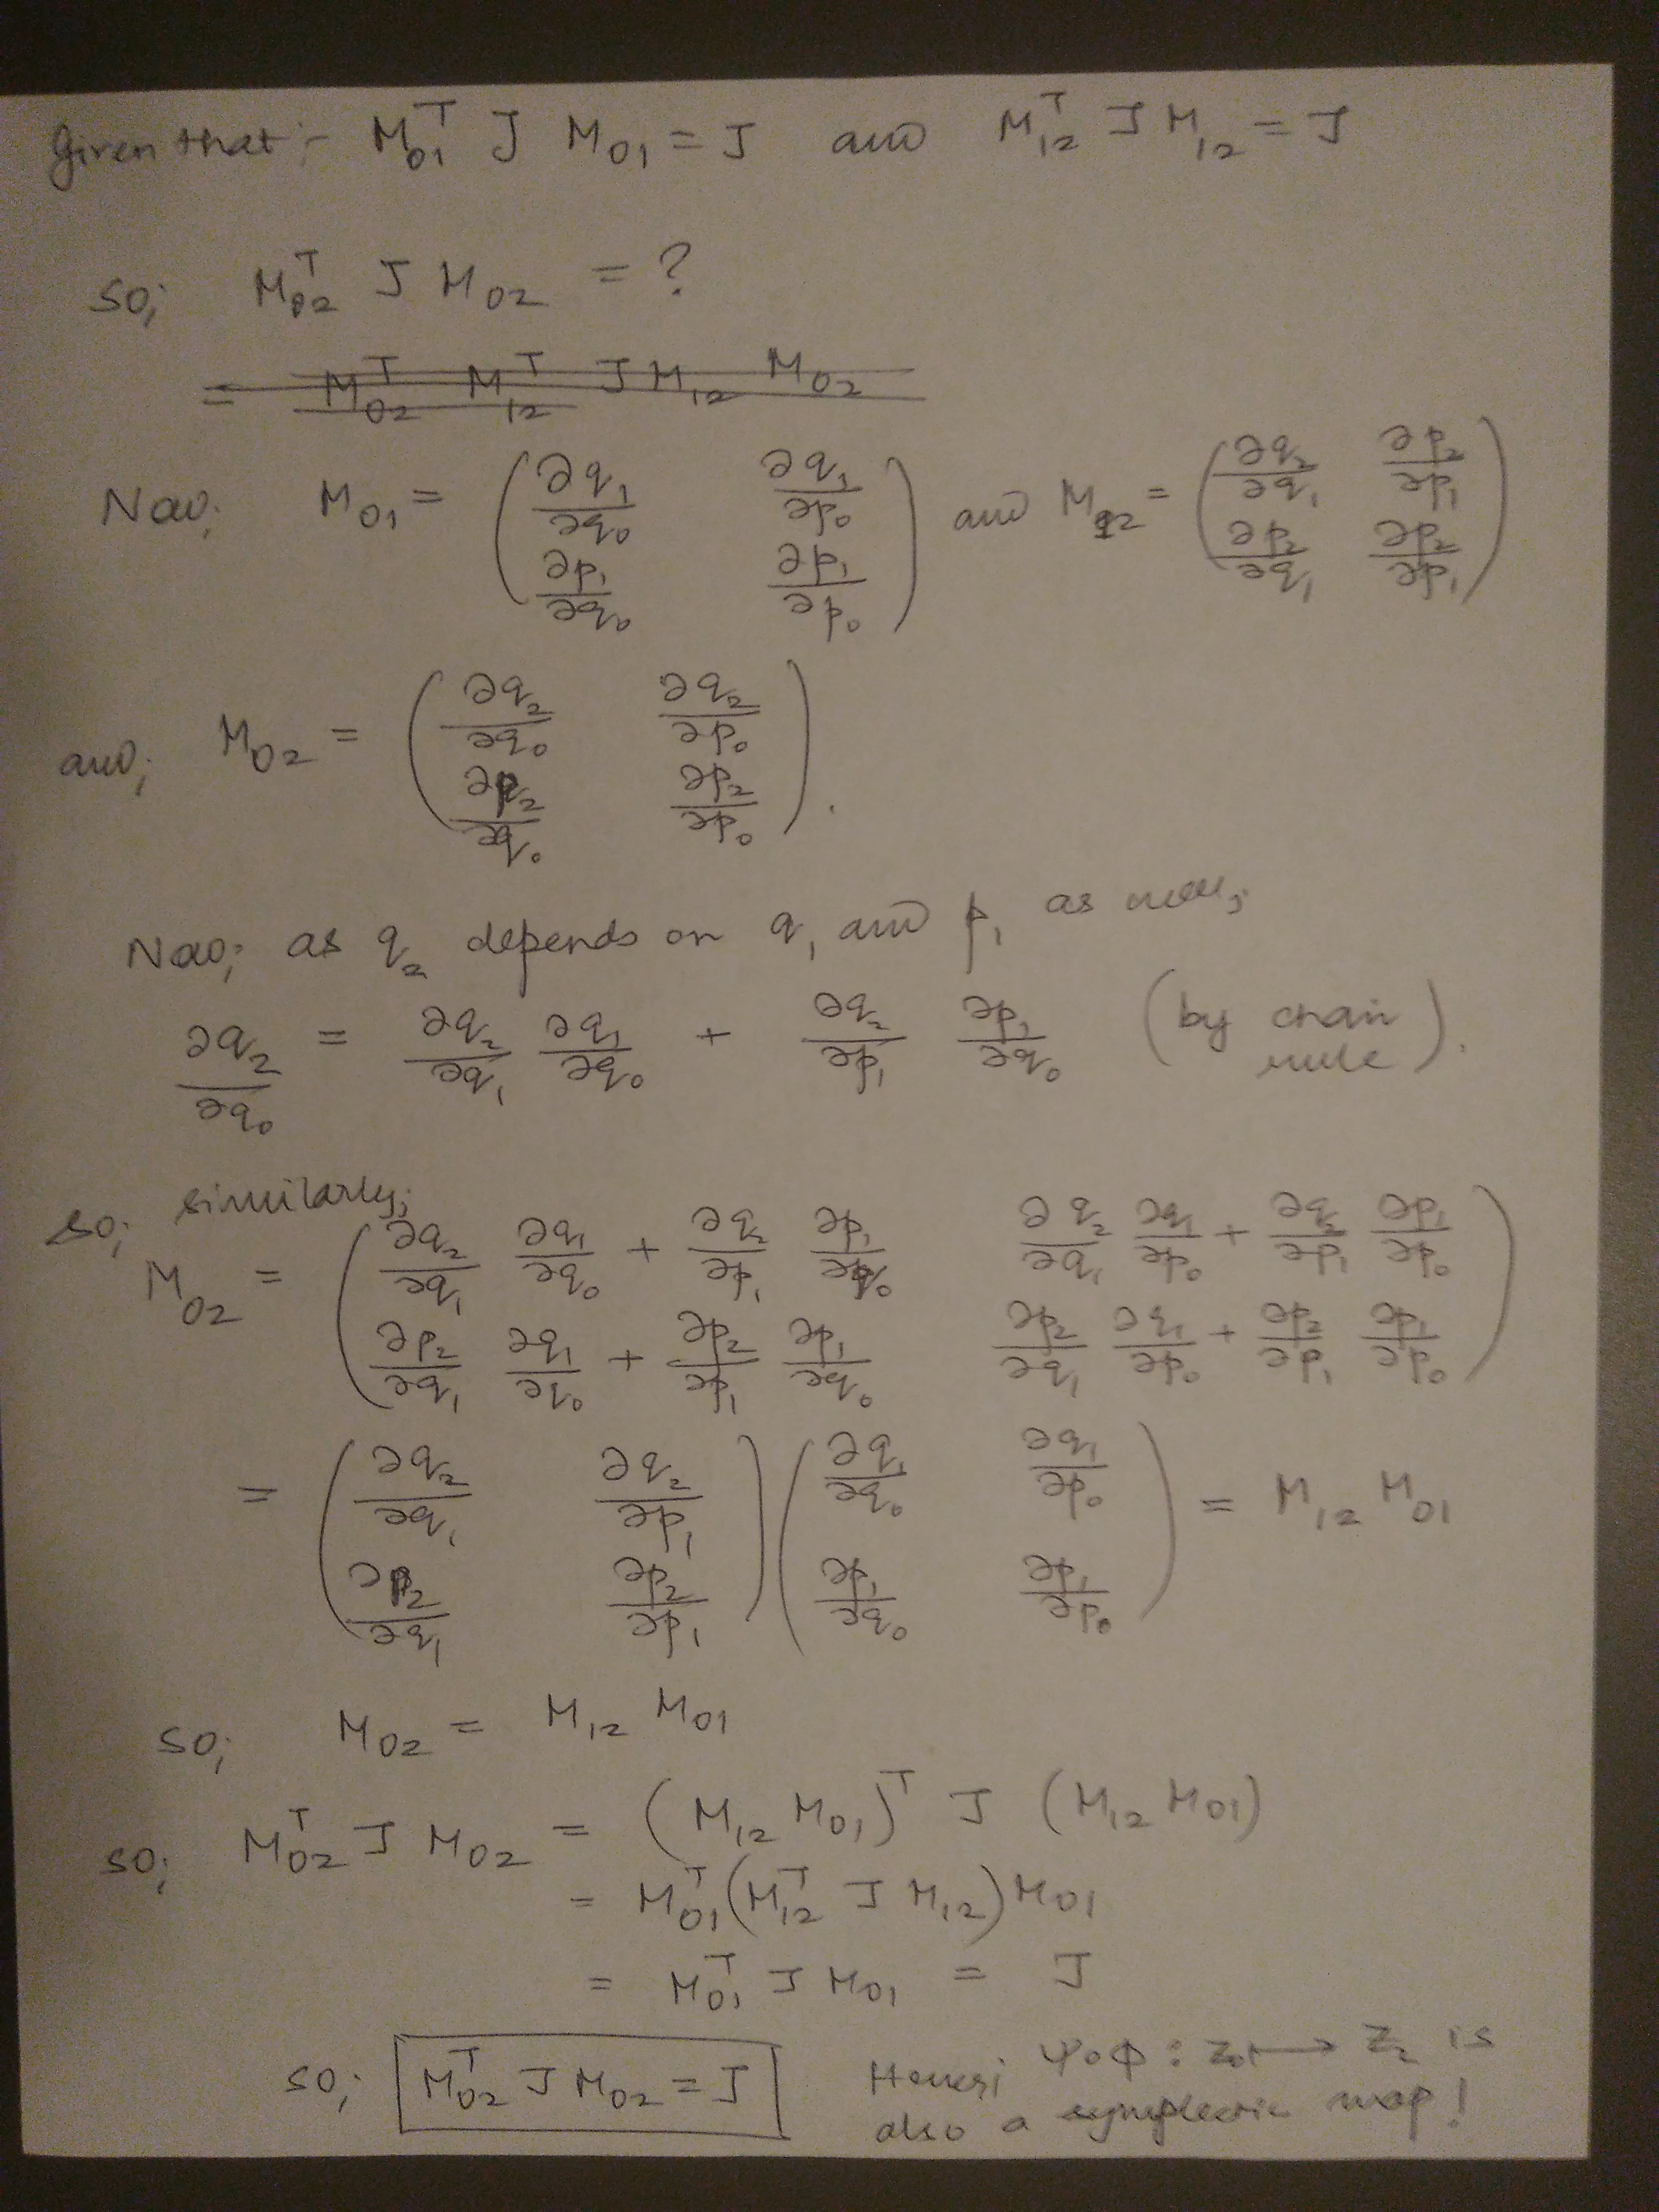 Given that :- M₀₁ᵀ J M₀₁ = J and M₁₂ᵀ J M₁₂ = J
so; M₀₂ᵀ J M₀₂ = ?
= M₀₂ᵀ M₁₂ᵀ J M₁₂ M₀₂
Now; M₀₁ = ( ∂q₁/∂q₀ ∂q₁/∂p₀ ; ∂p₁/∂q₀ ∂p₁/∂p₀ ) and M₁₂ = ( ∂q₂/∂q₁ ∂p₂/∂p₁ ; ∂p₂/∂q₁ ∂p₂/∂p₁ )
and; M₀₂ = ( ∂q₂/∂q₀ ∂q₂/∂p₀ ; ∂p₂/∂q₀ ∂p₂/∂p₀ ).
Now; as q₂ depends on q₁ and p₁ as well;
∂q₂/∂q₀ = ∂q₂/∂q₁ ∂q₁/∂q₀ + ∂q₂/∂p₁ ∂p₁/∂q₀ (by chain rule).
so; similarly;
M₀₂ = ( ∂q₂/∂q₁ ∂q₁/∂q₀ + ∂q₂/∂p₁ ∂p₁/∂q₀ ∂q₂/∂q₁ ∂q₁/∂p₀ + ∂q₂/∂p₁ ∂p₁/∂p₀ ; ∂p₂/∂q₁ ∂q₁/∂q₀ + ∂p₂/∂p₁ ∂p₁/∂q₀ ∂p₂/∂q₁ ∂q₁/∂p₀ + ∂p₂/∂p₁ ∂p₁/∂p₀ )
= ( ∂q₂/∂q₁ ∂q₂/∂p₁ ; ∂p₂/∂q₁ ∂p₂/∂p₁ ) ( ∂q₁/∂q₀ ∂q₁/∂p₀ ; ∂p₁/∂q₀ ∂p₁/∂p₀ ) = M₁₂ M₀₁
so; M₀₂ = M₁₂ M₀₁
so; M₀₂ᵀ J M₀₂ = (M₁₂ M₀₁)ᵀ J (M₁₂ M₀₁)
= M₀₁ᵀ (M₁₂ᵀ J M₁₂) M₀₁
= M₀₁ᵀ J M₀₁ = J
so; M₀₂ᵀ J M₀₂ = J
ψ∘φ : z₀ ↦ z₂ is
also a symplectic map!